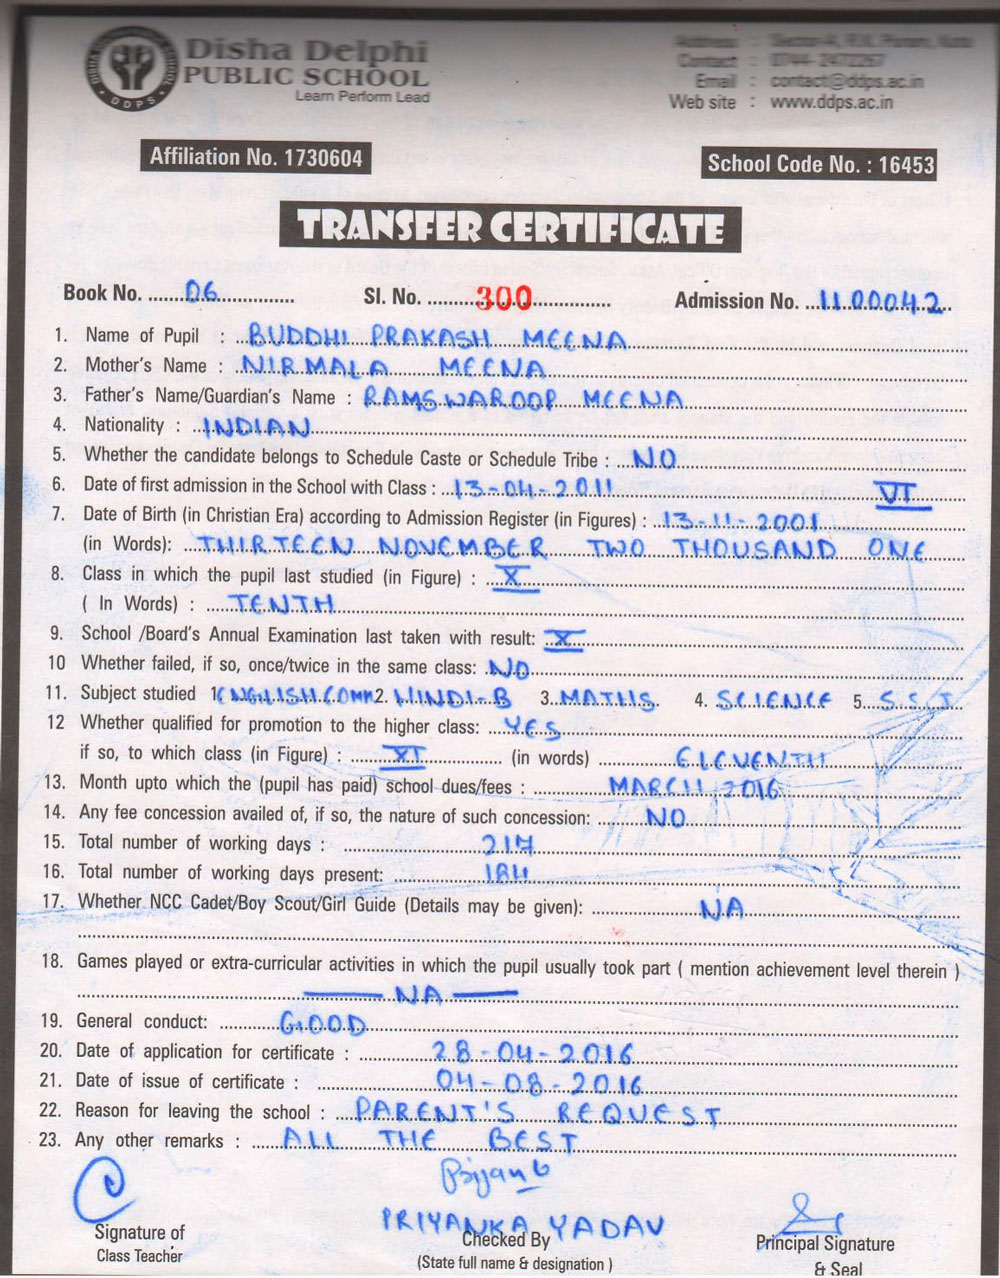 Disha Delphi
PUBLIC SCHOOL
Learn Perform Lead
DDPS
Address :
Contact : 0744-
Email : contact@ddps.ac.in
Web site : www.ddps.ac.in
Affiliation No. 1730604
School Code No. : 16453
TRANSFER CERTIFICATE
Book No. 06 Sl. No. 300 Admission No. 1100042
1. Name of Pupil : BUDDHI PRAKASH MEENA
2. Mother's Name : NIRMALA MEENA
3. Father's Name/Guardian's Name : RAMSWAROOP MEENA
4. Nationality : INDIAN
5. Whether the candidate belongs to Schedule Caste or Schedule Tribe : NO
6. Date of first admission in the School with Class : 13-04-2011 VI
7. Date of Birth (in Christian Era) according to Admission Register (in Figures) : 13-11-2001
(in Words): THIRTEEN NOVEMBER TWO THOUSAND ONE
8. Class in which the pupil last studied (in Figure) : X
( In Words) : TENTH
9. School /Board's Annual Examination last taken with result: X
10 Whether failed, if so, once/twice in the same class: NO
11. Subject studied 1. ENGLISH COMM 2. HINDI-B 3. MATHS 4. SCIENCE 5. S.S.T
12 Whether qualified for promotion to the higher class: YES
if so, to which class (in Figure) : XI (in words) ELEVENTH
13. Month upto which the (pupil has paid) school dues/fees : MARCH 2016
14. Any fee concession availed of, if so, the nature of such concession: NO
15. Total number of working days : 217
16. Total number of working days present: 184
17. Whether NCC Cadet/Boy Scout/Girl Guide (Details may be given): NA
18. Games played or extra-curricular activities in which the pupil usually took part ( mention achievement level therein )
NA
19. General conduct: GOOD
20. Date of application for certificate : 28-04-2016
21. Date of issue of certificate : 04-08-2016
22. Reason for leaving the school : PARENT'S REQUEST
23. Any other remarks : ALL THE BEST
PRIYANKA YADAV
Signature of
Class Teacher
Checked By
(State full name & designation )
Principal Signature
& Seal